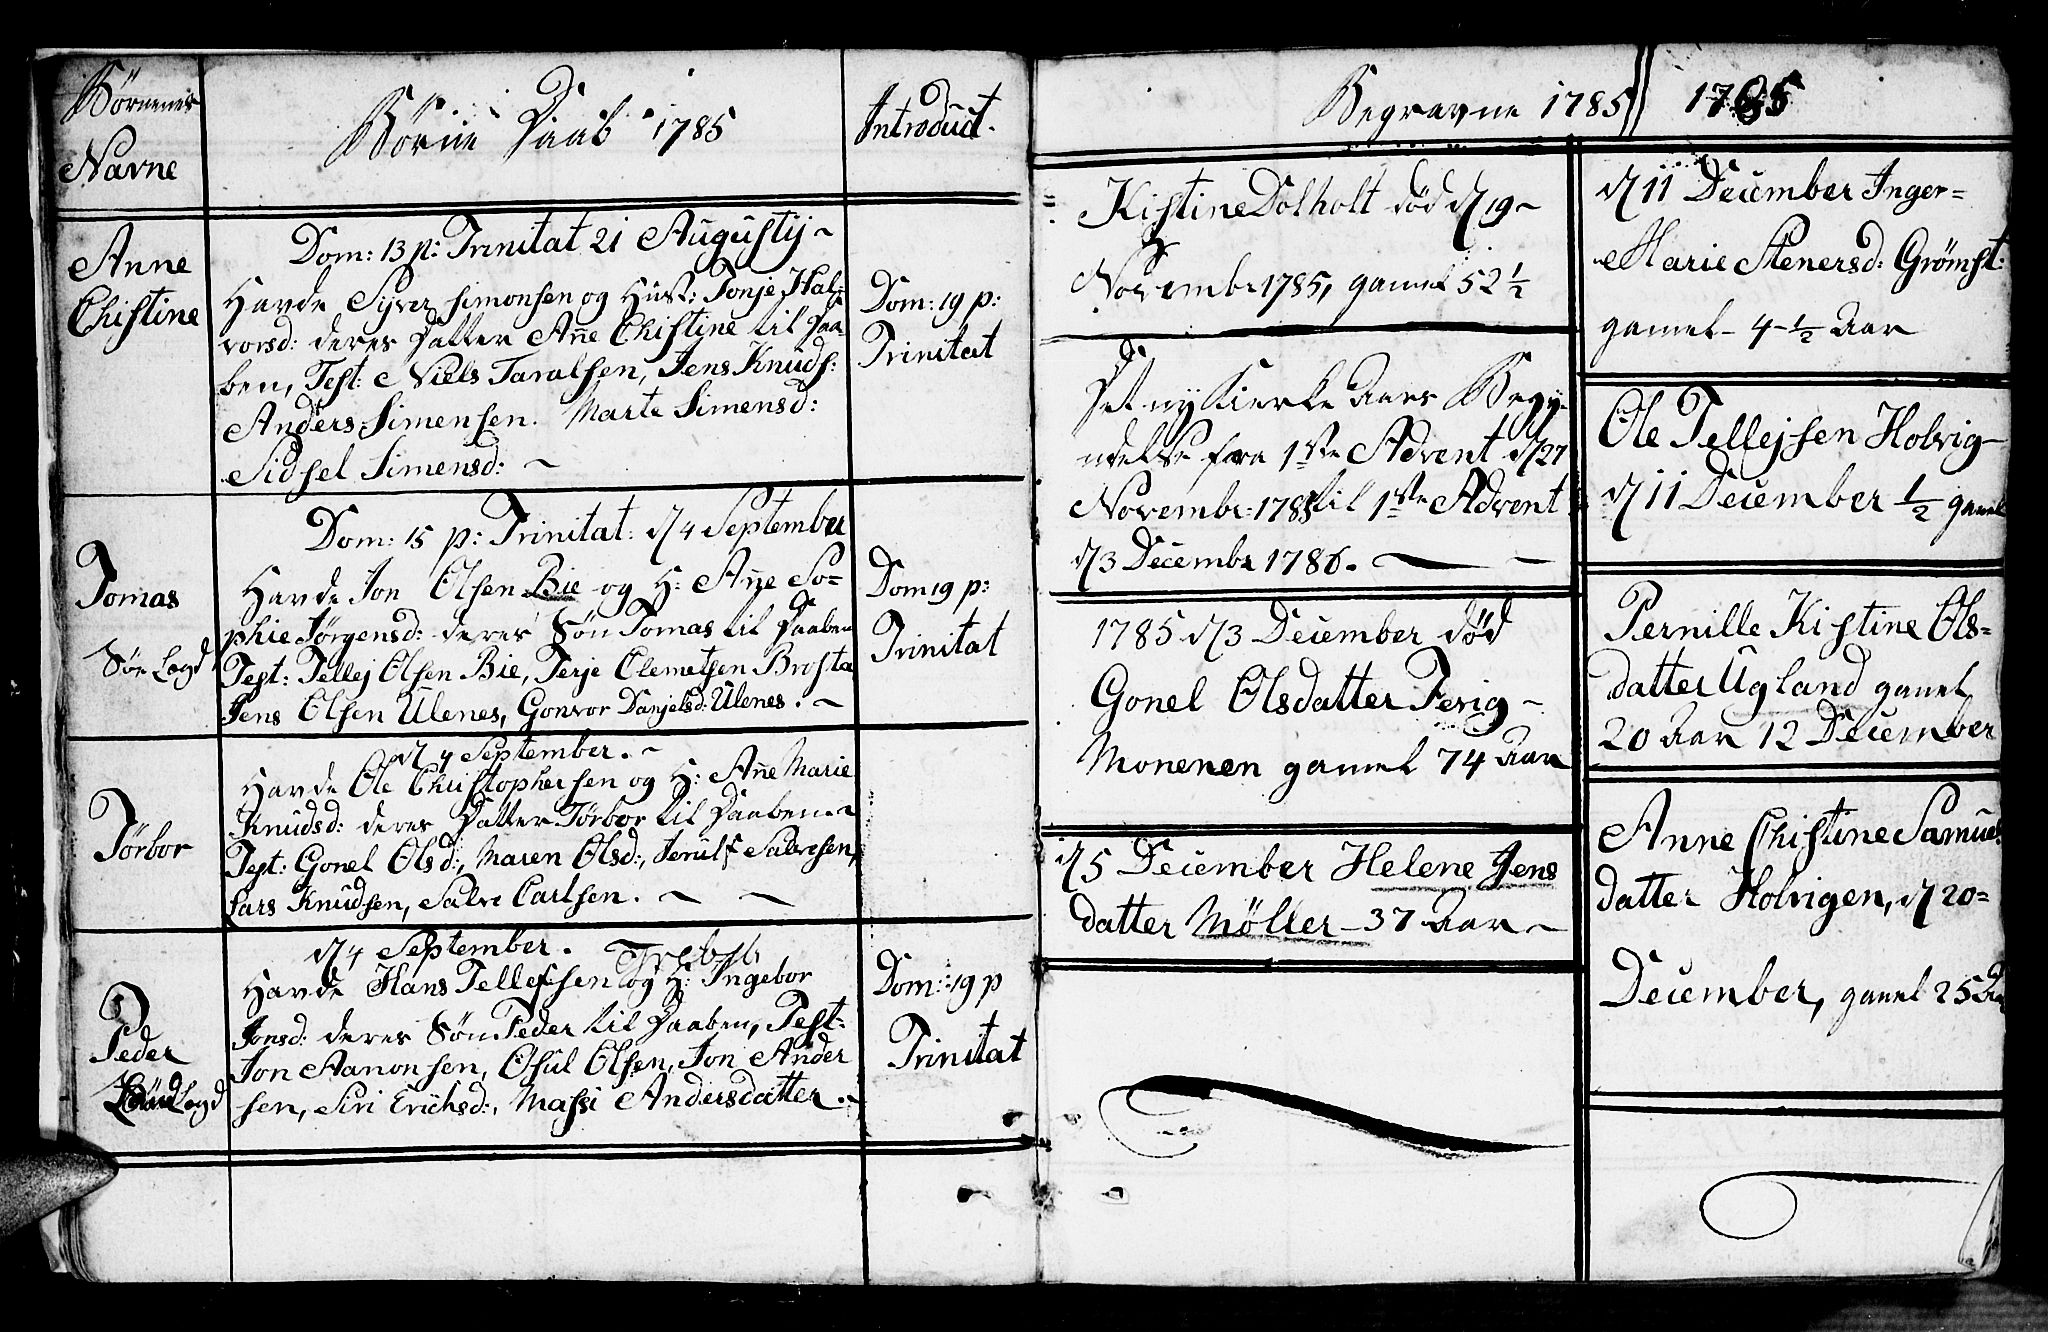 Børnenes
Navne
Børne Daab 1785
Introduct.
Anne
Christine
Dom: 13 p: Trinitat 21 Augustij
Havde Syver Simonsen og Hust: Tonje Hal-
vorsd: deres Datter Añe Christine til Daa-
ben, Test: Niels Taralsen, Jens Knuds:
Anders Simensen. Marte Simensd:
Sidsel Simensd:
Dom: 19 p:
Trinitat
Tomas
Søe Legd
Dom: 15 p: Trinitat: d 4 September
Havde Jon Olsen Bie og H: Añe So=
phie Jørgensd: deres Søn Tomas til Daaben
Test: Tellej Olsen Bie, Terje Clemetsen Brosta
Jens Olsen Ulenes, Gonvor Danjelsd: Ulenes.
Dom 19 p:
Trinitat
Tørbor
d 4 September.
Havde Ole Christophersen og H: Añe Marie
Knudsd: deres Datter Tørbor til Daaben
Test: Gonel Olsd:, Maren Olsd:, Jerulf Salvesen,
Lars Knudsen, Salve Carlsen.
Peder
Legd
d 4 September.
Havde Hans Tellefsen og H: Ingebor
Jonsd: deres Søn Peder til Daaben, Test:
Jon Aanonsen, Osul Olsen, Jon Ander
sen, Siri Erichsd:, Massi Andersdatter.
Dom: 19 p
Trinitat
Begravne 1785
Kistine Dolholt død d 19
Novembr 1785, gamel 52 1/2
Det ny Kierke Aars Begy-
ndelse fra 1ste Advent d 27
Novembr: 1785 til 1ste Advent
d 3 Decembr 1786.
1785 d 3 December død
Gonel Olsdatter Terig
Monenen gamel 74 Aar
d 5 December Helene Jens
datter Møller - 37 Aar
1785
d 11 December Inger=
Marie Stenersd: Grømst:
gamel 4 1/2 Aar
Ole Tellejsen Holvig
d 11 December 1/2 gamel
Pernille Kistine Ols=
datter Ugland gamel
20 Aar 12 December
Anne Christine Samuel
datter Holvigen, d 20=
December, gamel 25 Aar